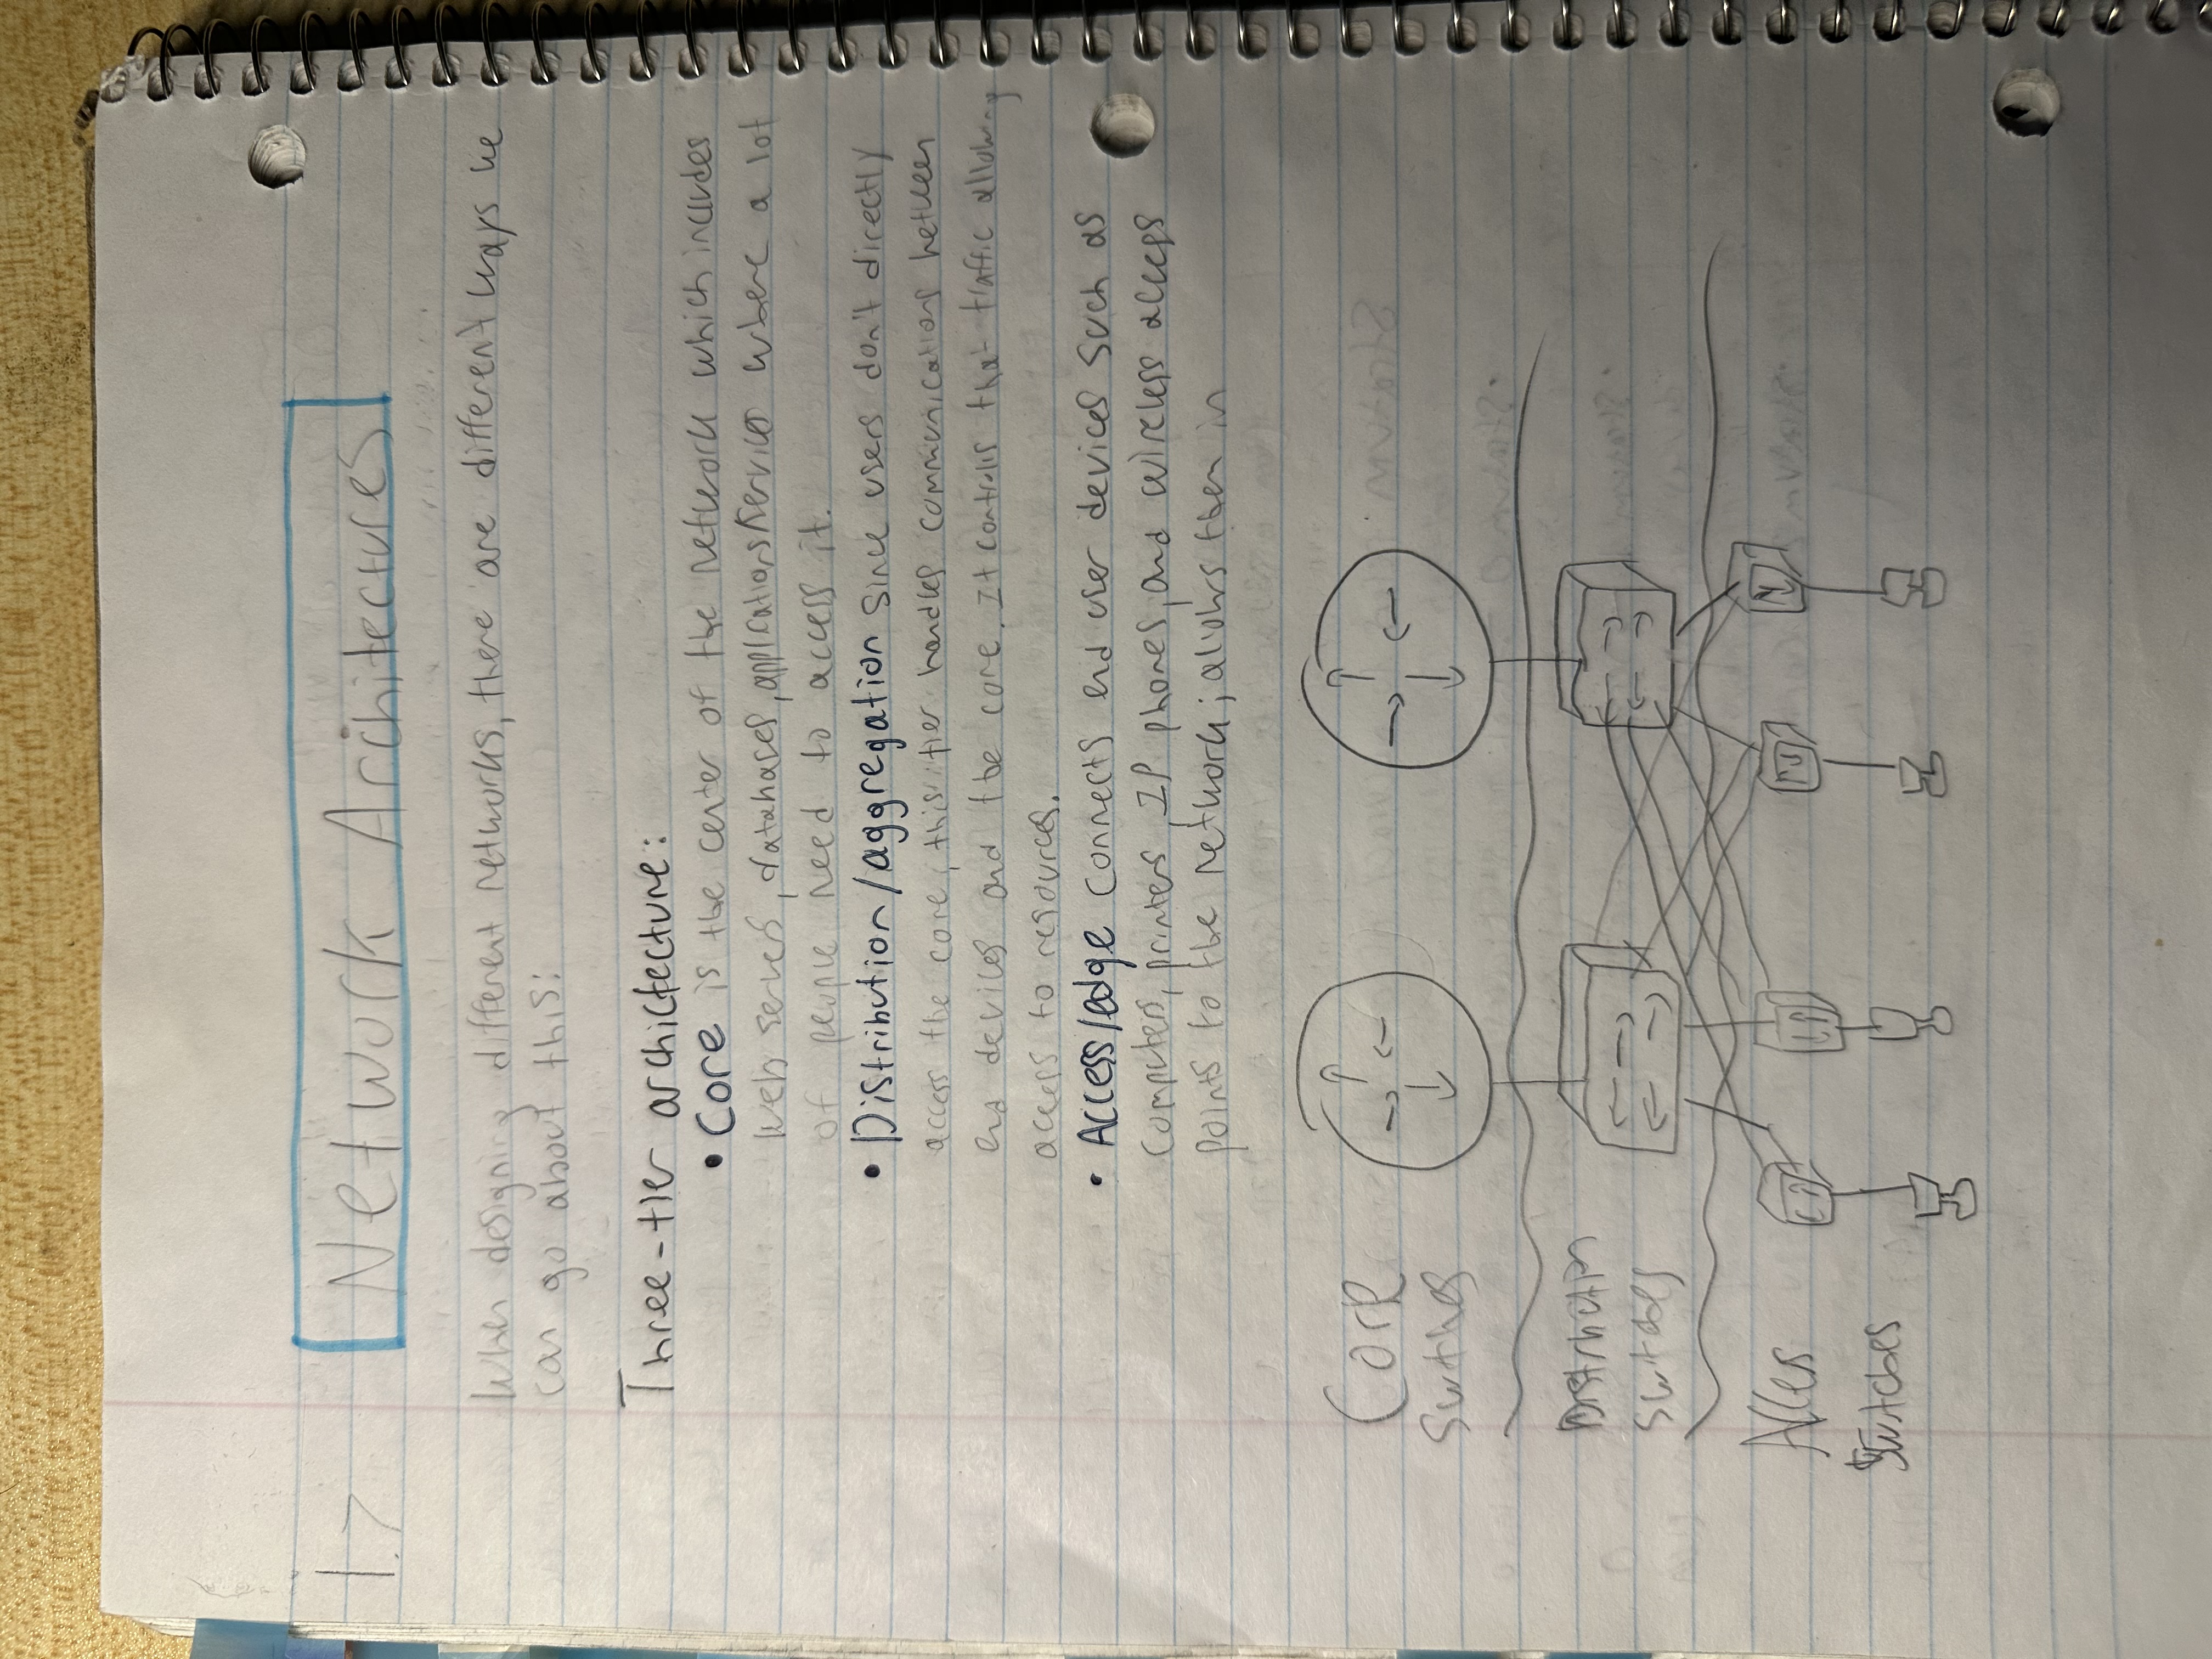 1.7 Network Architectures
When designing different networks, there are different ways we
can go about this:
Three-tier archictecture:
• Core is the center of the network which includes
web servers, databases, applications/services where a lot
of people need to access it.
• Distribution/aggregation since users don't directly
access the core, this tier handles communications between
end devices and the core. It controls that traffic allowing
access to resources.
• Access/edge connects end user devices such as
computers, printers, IP phones, and wireless access
points to the network; allows them in
Core
Switches
Distribution
Switches
Access
Switches